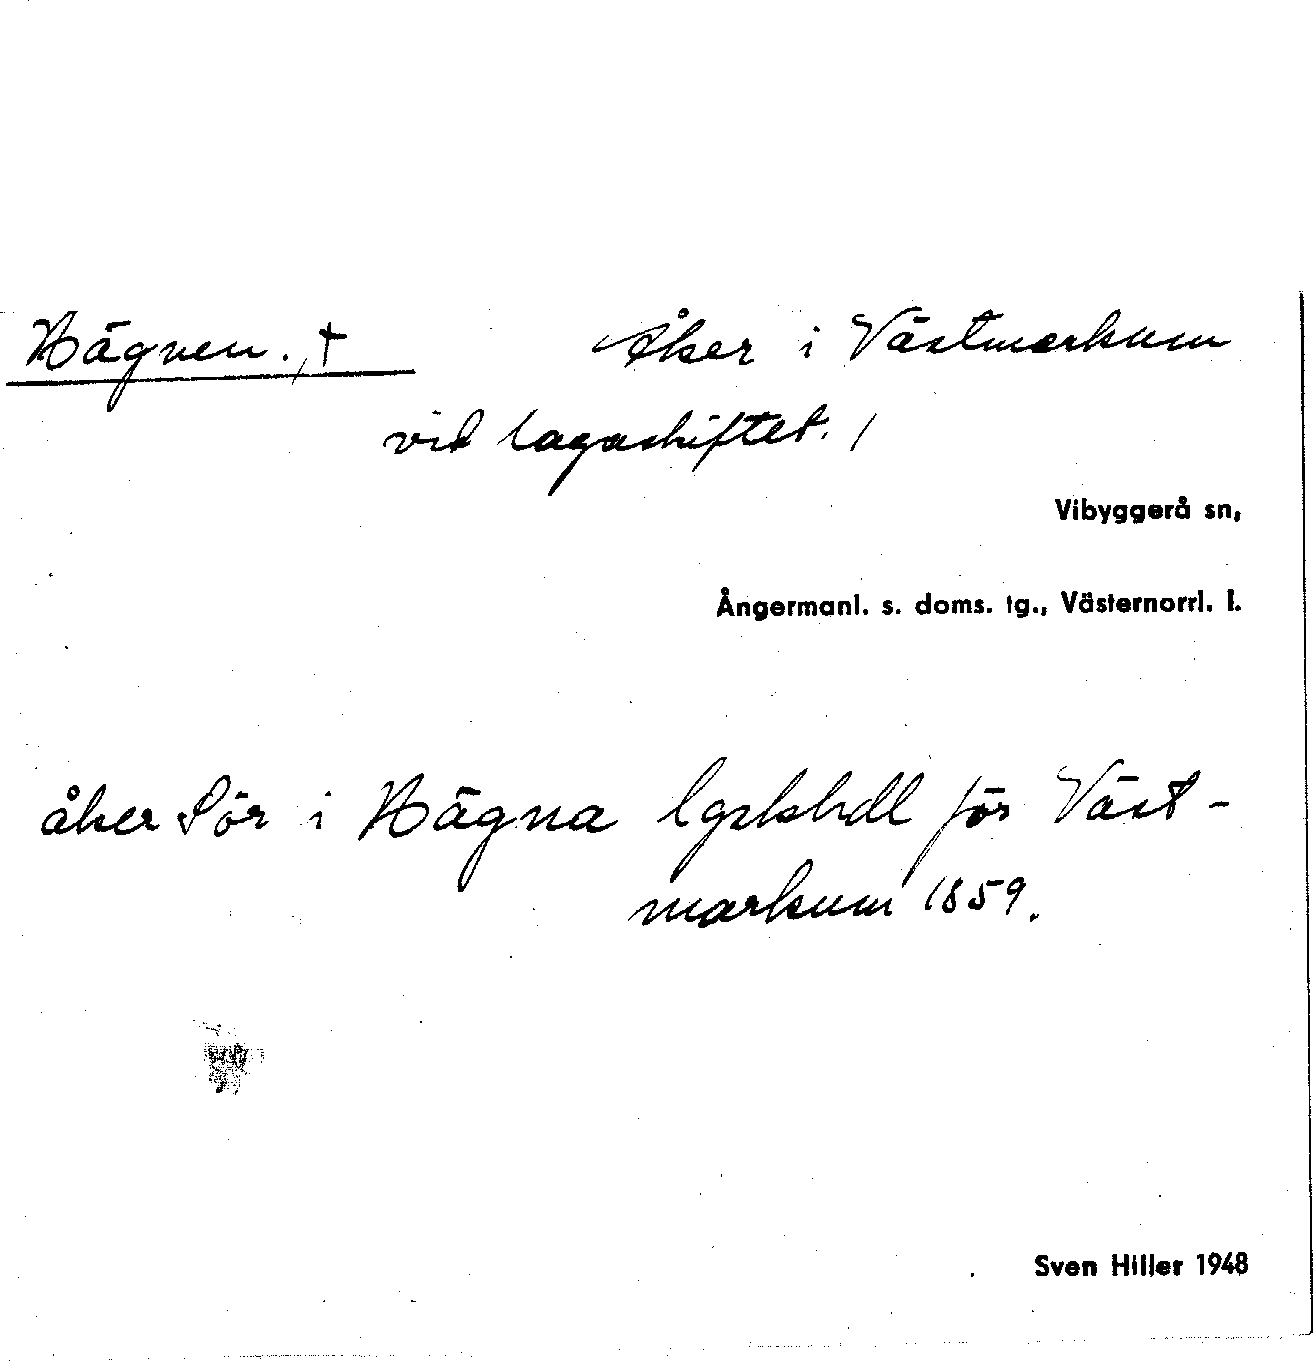 Hägnen., † Åker i Västmarkum
vid lagaskiftet. /
Vibyggerå sn,
Ångermanl. s. doms. tg., Västernorrl. l.
åker Sör i Hägna lgskhdl för Väst-
markum 1859.
Sven Hiller 1948